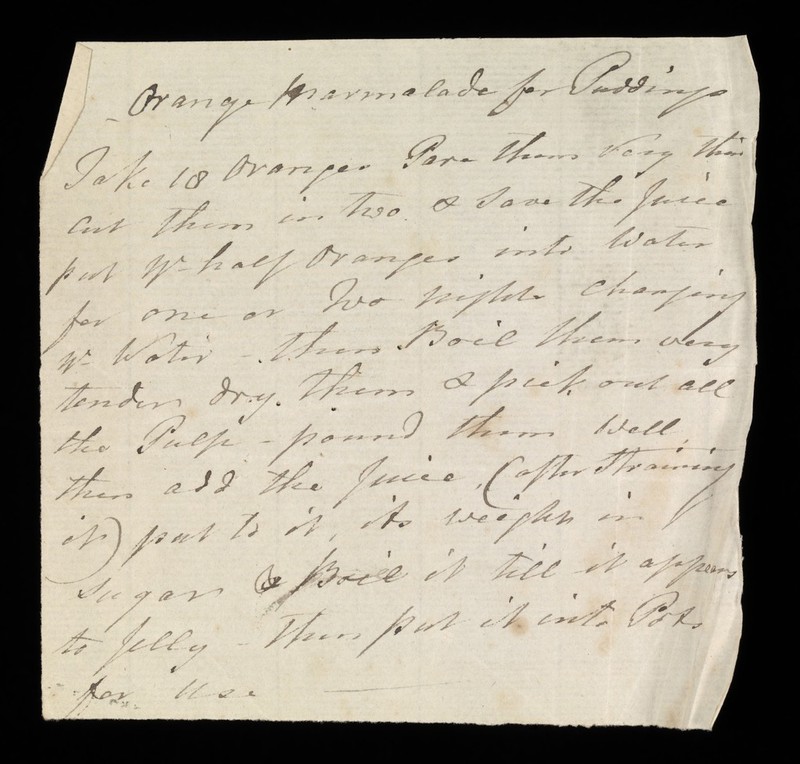 Orange Marmalade for Puddings
Take 18 Oranges Pare them very thin
cut them in two & Save the Juice
put ye half Oranges into Water
for one or two nights changing
ye Water - then Boil them very
tender dry them & pick out all
the Pulp - pound them well
then add the Juice, (after Straining
it) put to it, its weight in
Sugar & Boil it till it appears
to Jelly - then put it into Pots
for use